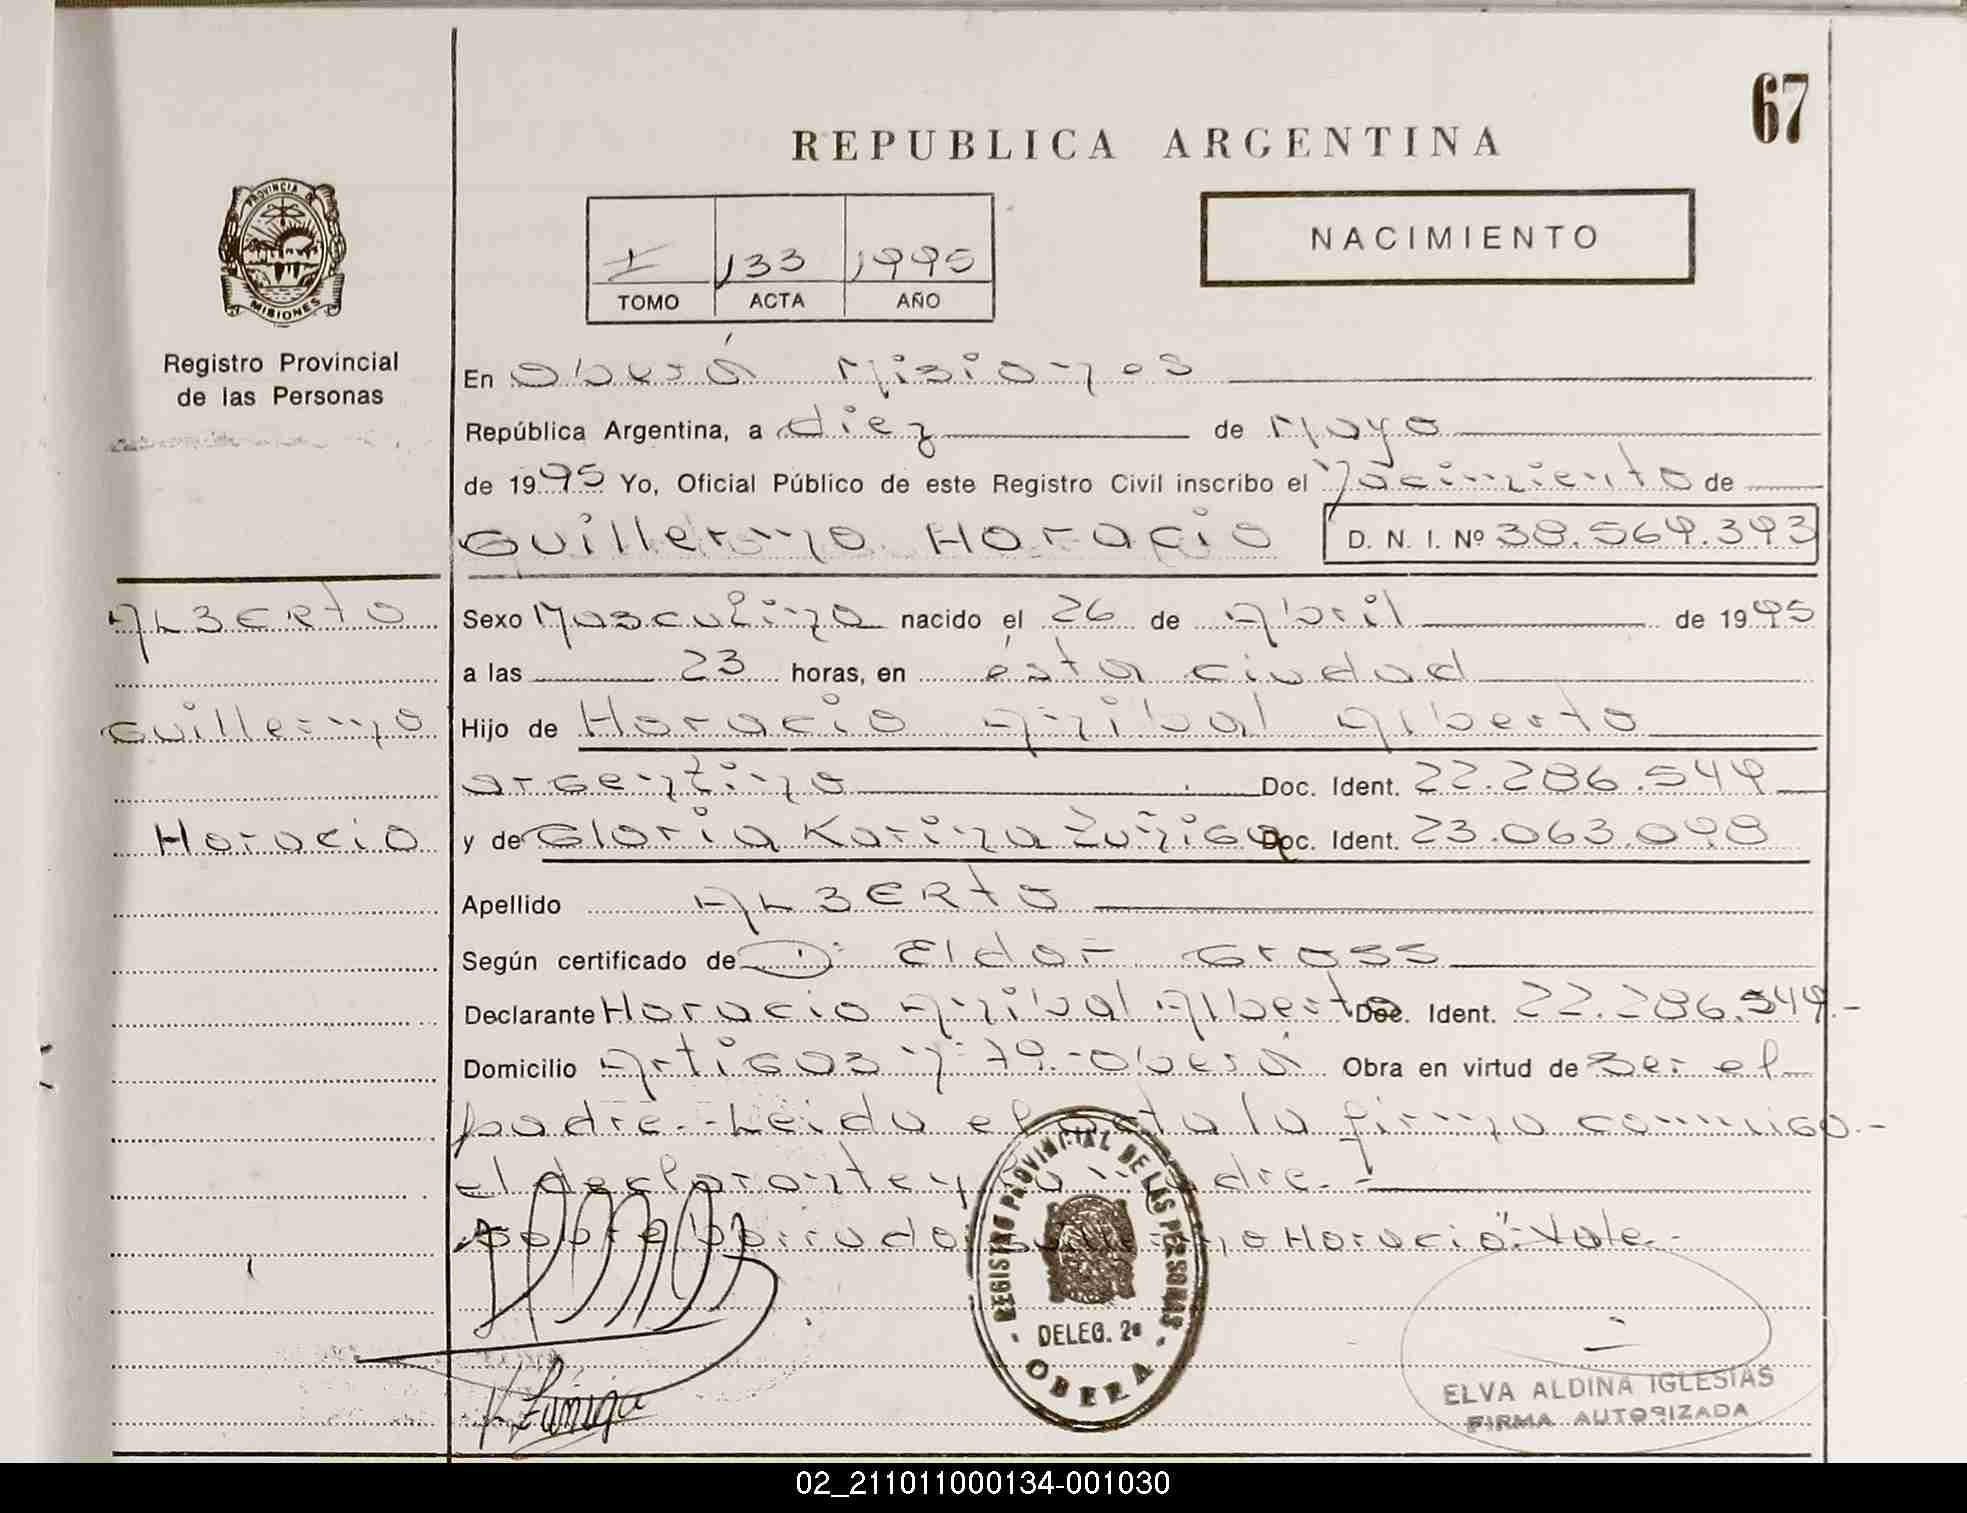 67
REPUBLICA ARGENTINA
PROVINCIA DE
MISIONES
I 133 1995
TOMO ACTA AÑO
NACIMIENTO
Registro Provincial
de las Personas
En Oberá Misiones
República Argentina, a diez de Mayo
de 1995 Yo, Oficial Público de este Registro Civil inscribo el Nacimiento de
Guillermo Horacio D. N. I. Nº 38.564.393
ALBERTO
Guillermo
Horacio
Sexo Masculino nacido el 26 de Abril de 1995
a las 23 horas, en ésta ciudad
Hijo de Horacio Anibal Alberto
argentino Doc. Ident. 22.286.544
y de Gloria Karina Zuñiga Doc. Ident. 23.063.098
Apellido ALBERTO
Según certificado de Dr Eldor Gross
Declarante Horacio Anibal Alberto Doc. Ident. 22.286.544.-
Domicilio Artigas y 79.-Oberá Obra en virtud de ser el
padre.-Leida el acta la firma conmigo.-
el declarante y su madre.-
Sobre borrado Horacio".-Vale.-
REGISTRO PROVINCIAL DE LAS PERSONAS
DELEG. 2ª
OBERA
Zuñiga
ELVA ALDINA IGLESIAS
FIRMA AUTORIZADA
02_211011000134-001030